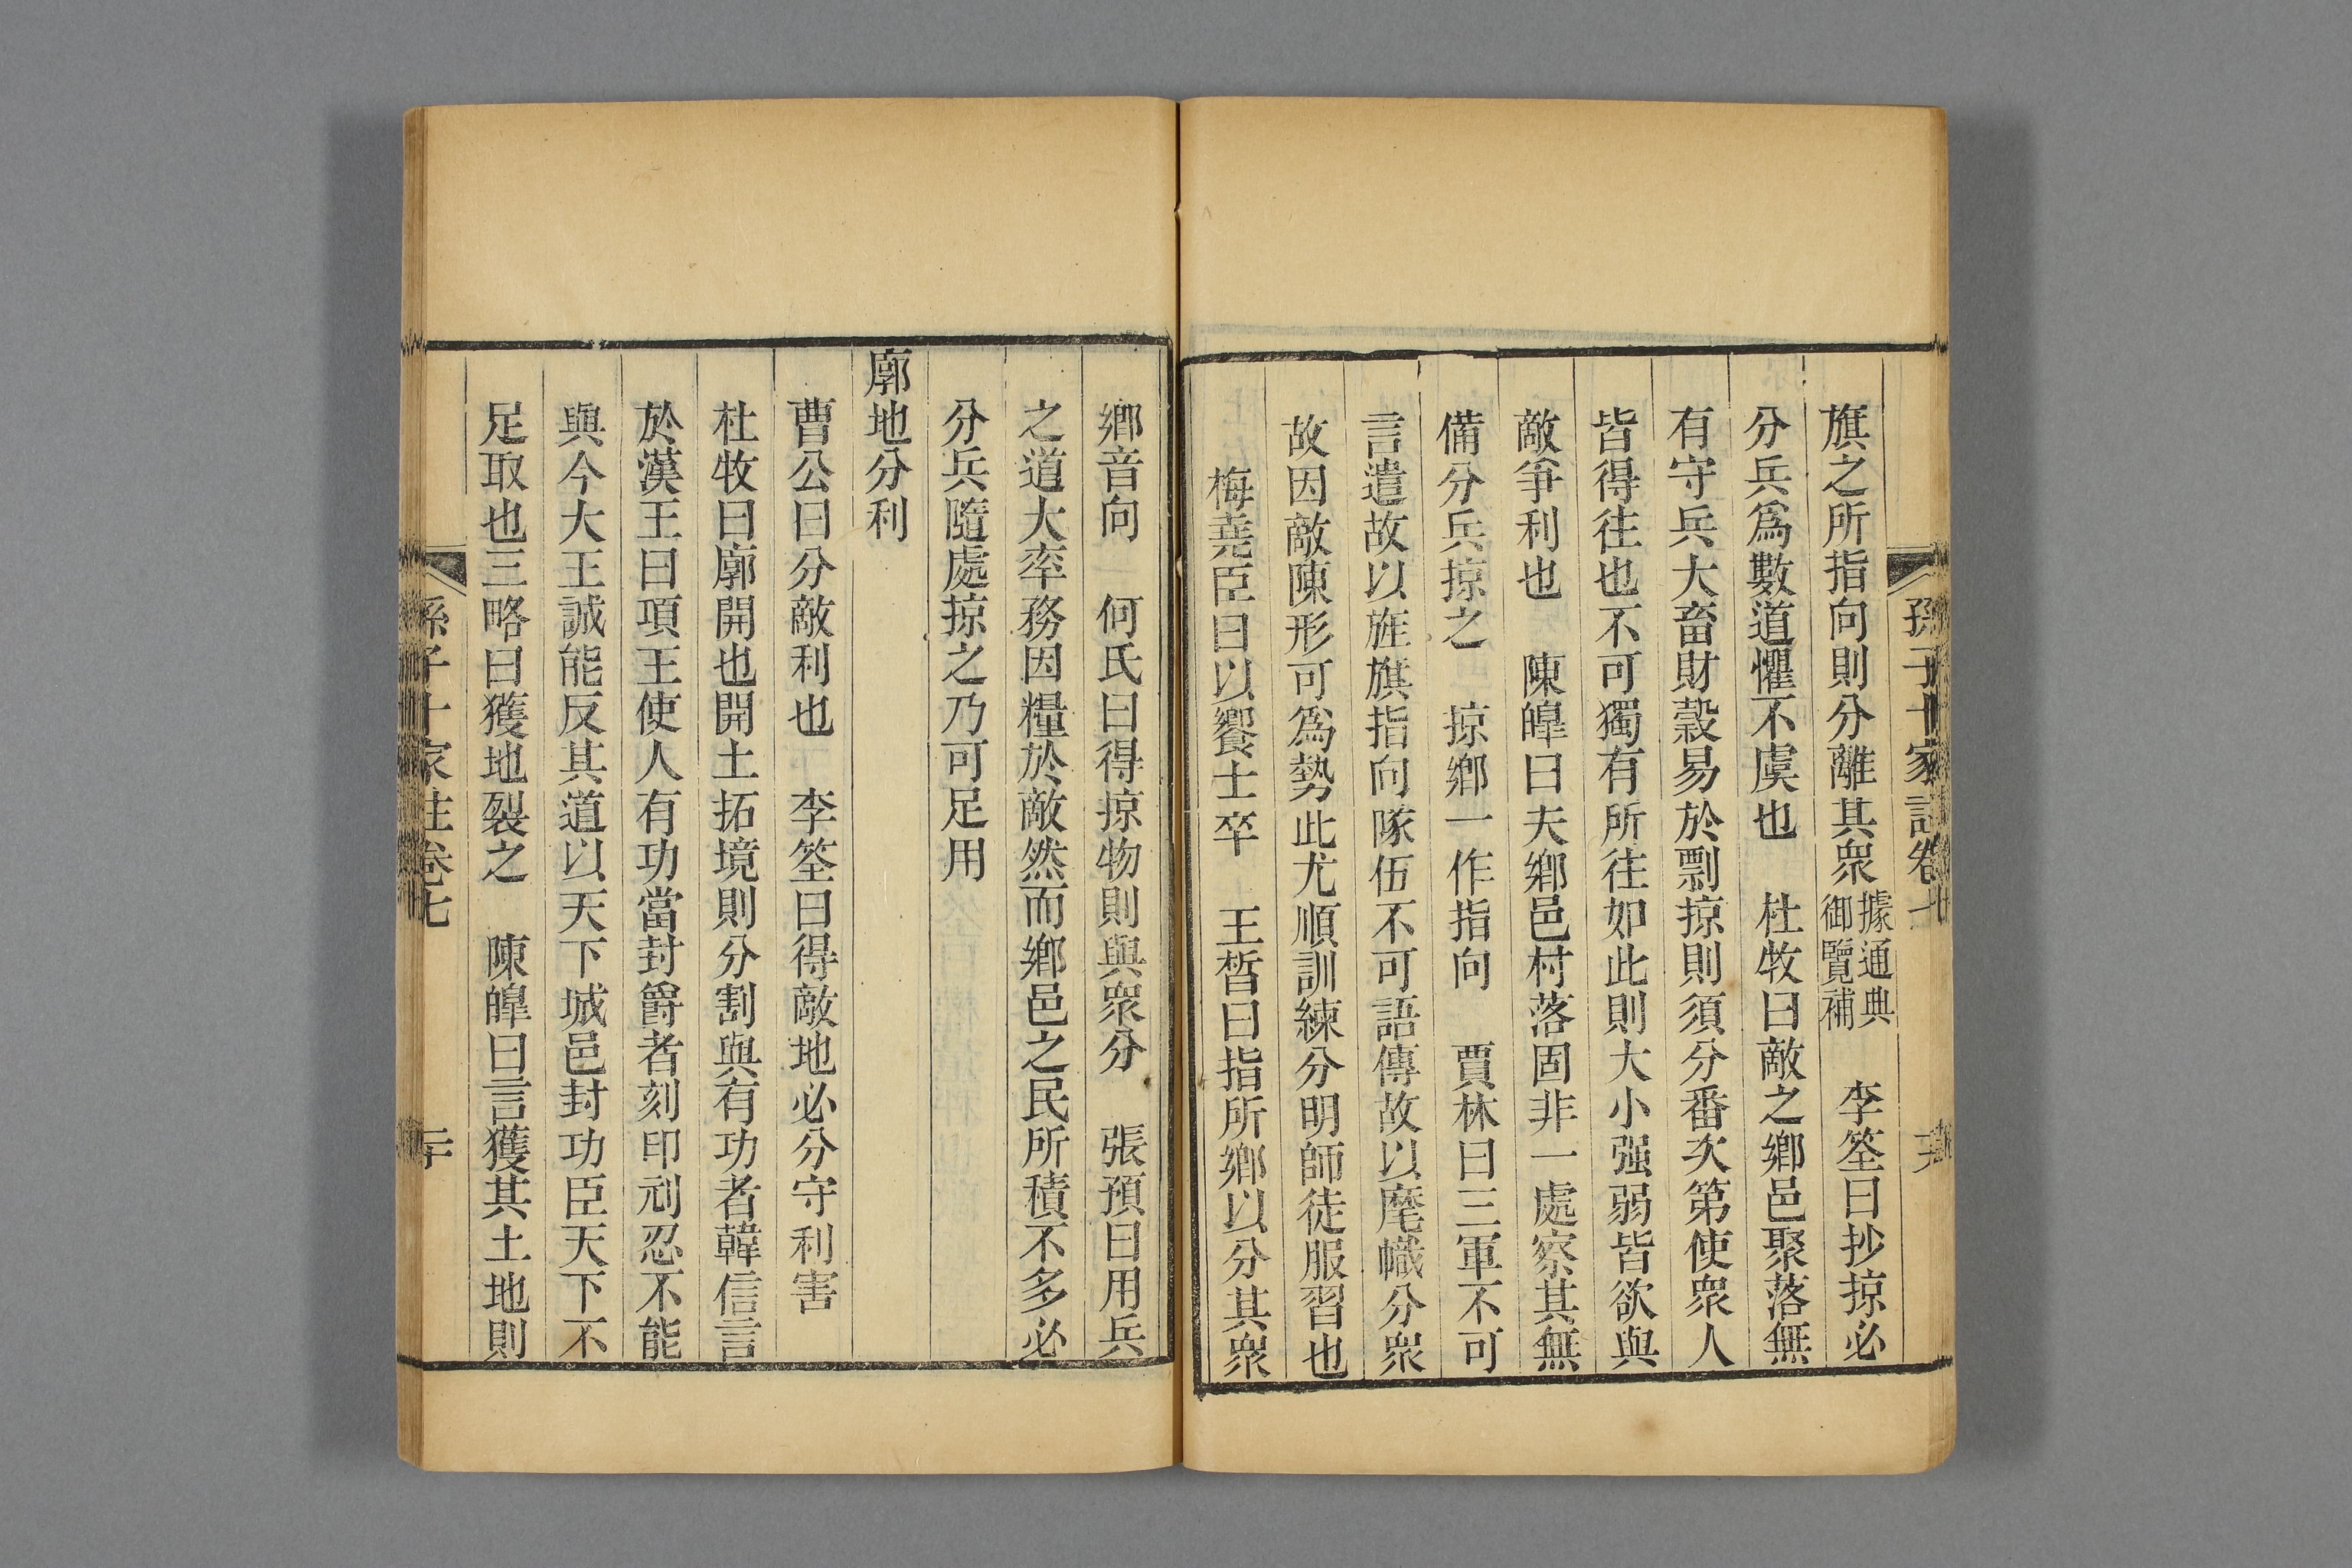 孫子十家註卷七
旗之所指向則分離其衆據通典御覽補　李筌曰抄掠必
分兵爲數道懼不虞也　杜牧曰敵之鄉邑聚落無
有守兵大畜財穀易於剽掠則須分番次第使衆人
皆得往也不可獨有所往如此則大小强弱皆欲與
敵爭利也　陳皥曰夫鄉邑村落固非一處察其無
備分兵掠之　掠鄉一作指向　賈林曰三軍不可
言遣故以旌旗指向隊伍不可語傳故以麾幟分衆
故因敵陳形可爲勢此尤順訓練分明師徒服習也
梅堯臣曰以饗士卒　王晳曰指所鄉以分其衆
鄉音向　何氏曰得掠物則與衆分　張預曰用兵
之道大率務因糧於敵然而鄉邑之民所積不多必
分兵隨處掠之乃可足用
廓地分利
曹公曰分敵利也　李筌曰得敵地必分守利害
杜牧曰廓開也開土拓境則分割與有功者韓信言
於漢王曰項王使人有功當封爵者刻印刓忍不能
與今大王誠能反其道以天下城邑封功臣天下不
足取也三略曰獲地裂之　陳皥曰言獲其土地則
孫子十家註卷七　二十